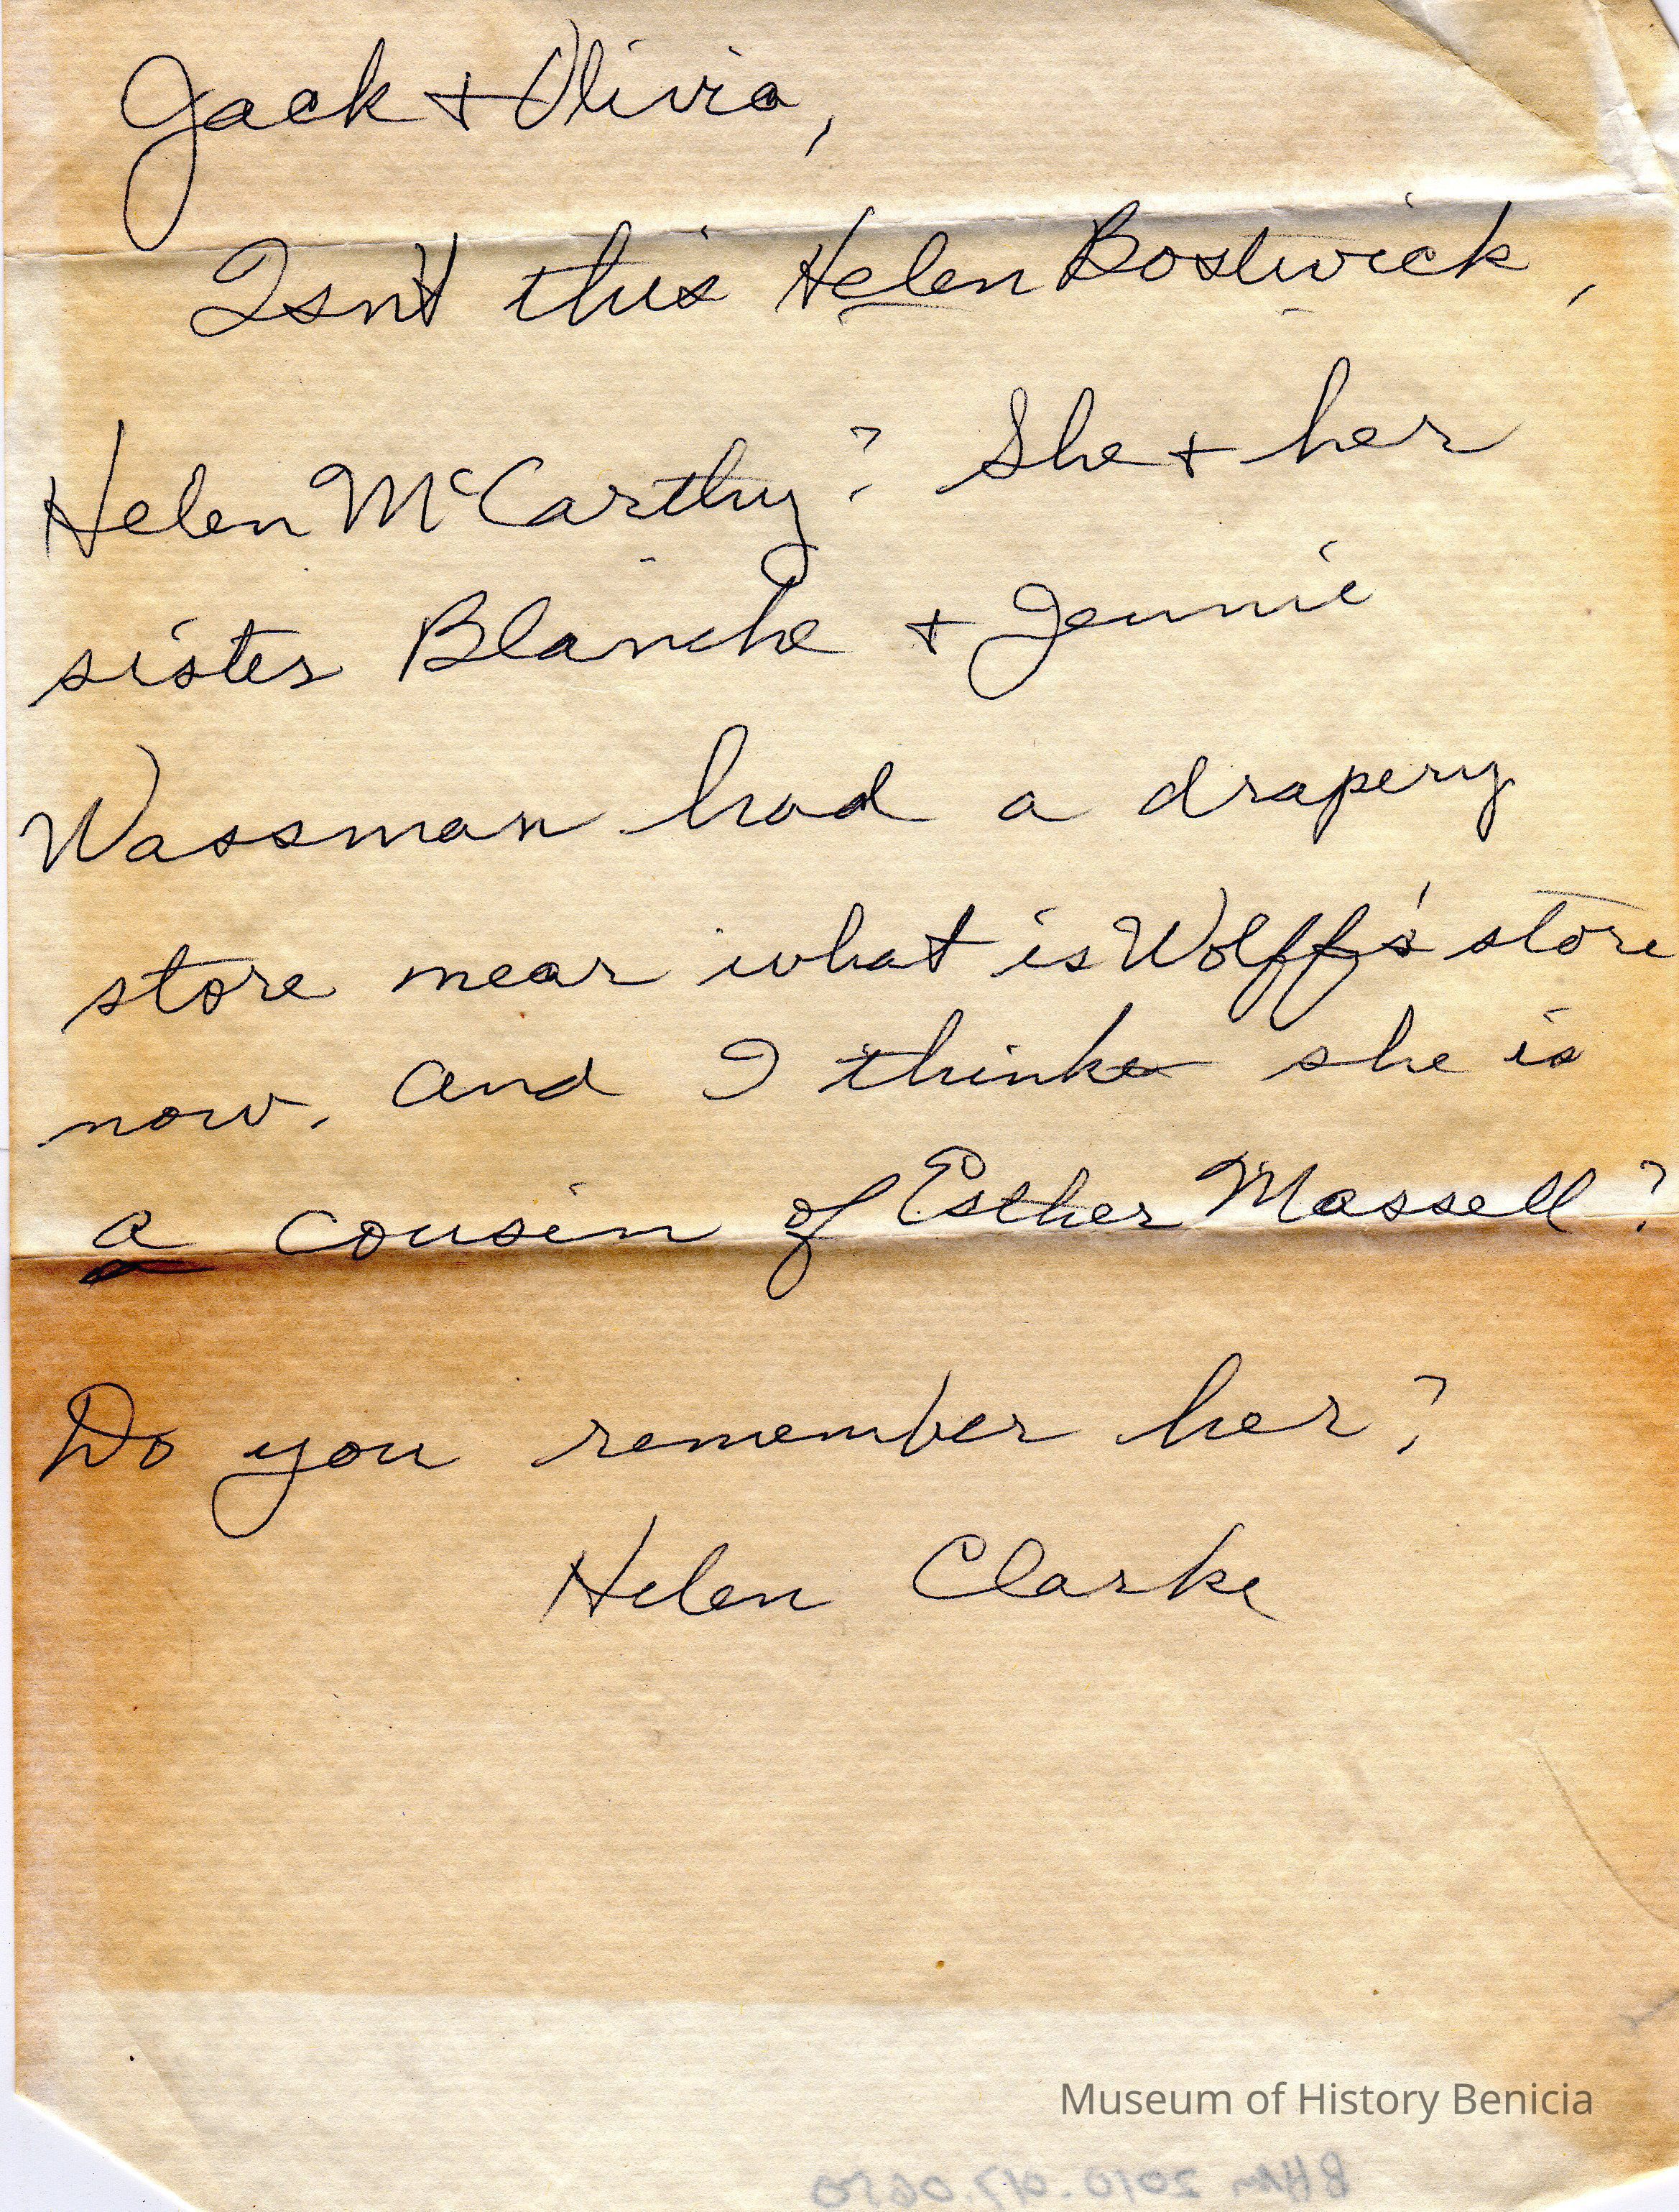 Jack + Olivia,
Isn't this Helen Bostwick,
Helen McCarthy? She + her
sister Blanche + Jennie
Wassman had a drapery
store near what is Wolff's store
now. And I think she is
a cousin of Esther Massell?
Do you remember her?
Helen Clarke
Museum of History Benicia
BHM 2010.017.0650